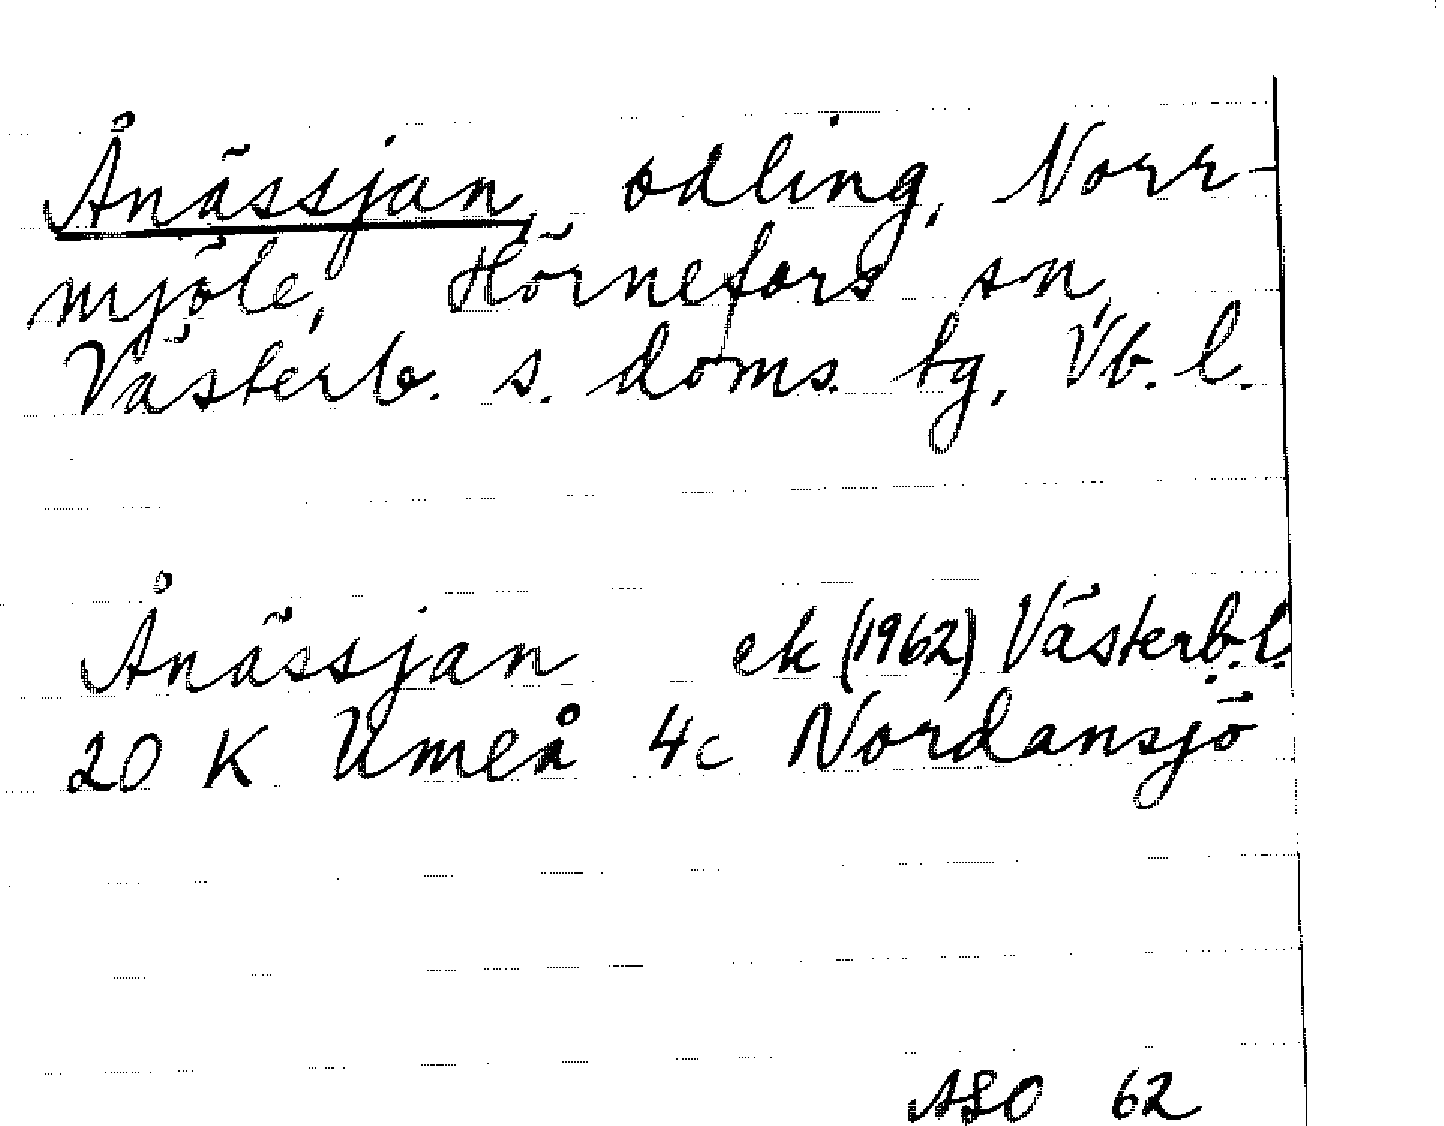 Ånässjan, odling, Norr-
mjöle, Hörnefors sn,
Västerb. s. doms. tg, Vb. l.
Ånässjan ek (1962) Västerb. l.
20 K Umeå 4c Nordansjö
ASO 62